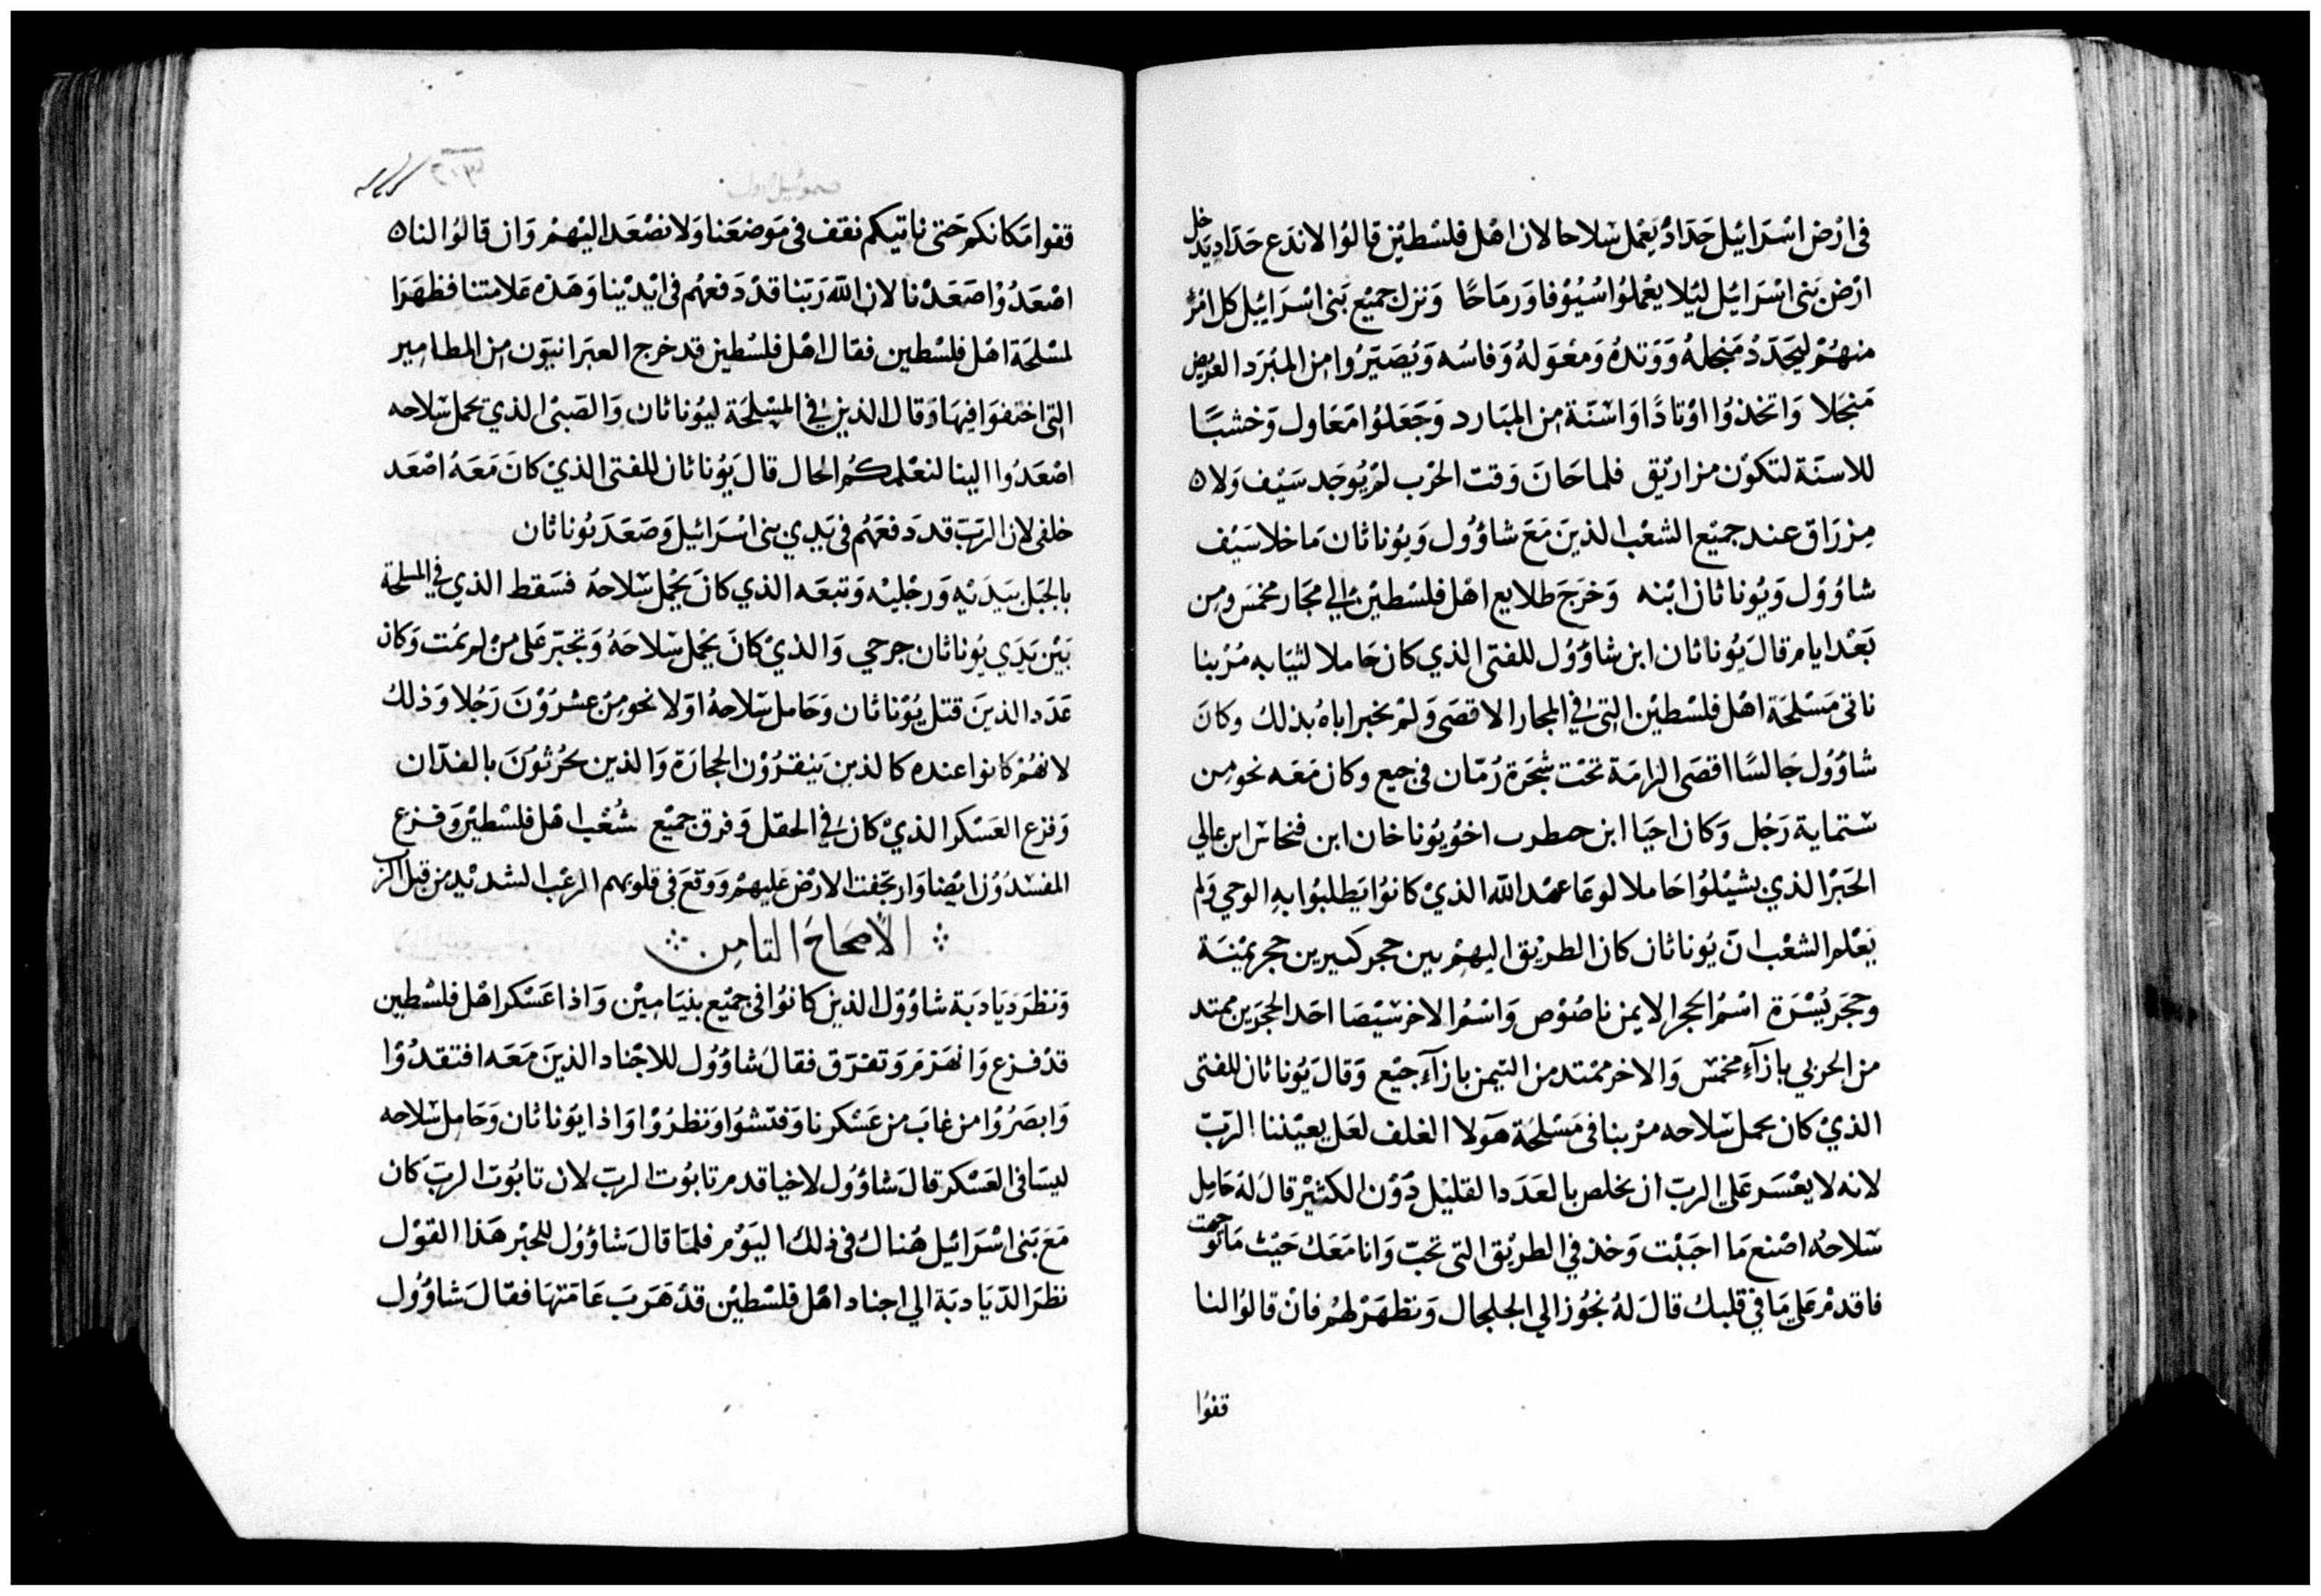 فى ارْض اسْرَائيْل حَدَادْ يَعْمل سْلاحا لان اهْل فلسْطيْن قالوُا لاندَع حَدَاد يَدخل
ارْض بَنى اسْرَائيْل ليْلا يعْملوُا سُيُوْفا وَرمَاحًا وَنزل جميْع بَنى اسْرَائيْل كل امْرُ
منهُمْ ليُحَدَدْ مَنجلهُ وَوَتدهُ وَمعْوَلهُ وَفاسُه وَيُصَيّروُا من المبْرَد العريض
مَنجَلا وَاتخذوُا اوْتادًا وَاسْنّة من المبَارد وَجَعَلوُا مَعَاول وَخشبًا
للاسنّة لتكوْن مزاريْق فلما حَانَ وَقت الحرْب لمْ يُوَجَد سَيْف وَلا
مِزْرَاق عند جميْع الشعْب الذينَ مَعَ شاؤُول وَيوُناثان مَا خلا سَيْف
شاؤُوْل وَيوُناثان ابْنه وَخرَجَ طلايع اهْل فلسْطيْن الي مجَار مخمَس ومِن
بَعْد ايام قالَ يوُناثان ابن شاؤُوُل للفتى الذي كان حَاملا لثيَابه مُرْ بنا
ناتى مَسْلحَة اهْل فلسْطيْن التى فى المجار الاقصَى وَلمْ يخبر اباهُ بذلك وكانَ
شاؤُوُل جَالسًا اقصَى الرامَة تحْت شجَرَة رُمّان فى جبع وكان مَعَه نحو من
ستماية رَجُل وَكان احيَا ابن حطرب اخوُ يُوناخان ابن فنحاس ابن عالي
الحَبْر الذي بشيْلوُا حَاملا لوعَا عهْد اللّه الذيْ كانوُا يَطلبوُا به الوحي وَلم
يَعْلم الشعْب انّ يُوناثان كان الطريْق اليهمْ بين حجر كبيرين حجر يمْيَنة
وحجَر يُسْرَة اسْمُ الحجر الايمن ناصُوْص وَاسْمُ الاخر سَيْصَا احَد الحجرَين ممتد
من الحربي بازآءِ مخمسْ وَالاخر ممْتد من التيمن بازآءِ جبْع وَقالَ يُوناثان للفتى
الذيْ كان يحمل سْلاحه مرْ بنا فى مَسْلحَة هَولا الغلف لعَل يعيْننا الرَبّ
لانه لا يعْسَر عَلى الربّ ان يخلص بالعَدَد القليْل دُوْن الكثيْر قالَ لهُ حَامِل
سْلاحهُ اصْنع مَا احبَبْت وَخذ في الطريْق التى تحبّ وَانا مَعَك حَيْث مَا توجهت
فاقدمْ عَلى مَا في قلبك قالَ لهُ نجُوز الي الجلجال وَنظهَرْ لهُم فانْ قالوُا لنا
قفوُا
صموئيل اول
قفوا مَكانكم حَتى ناتيكم نقف فى مَوضعَنا وَلا نصْعَد اليْهمْ وَان قالوُا لنا
اصْعَدُوْا صَعَدْنا لان اللّه رَبّنا قدْ دَفعهُم فى ايْديْنا وَهَذه عَلامتنا فظهَرَا
لمسْلحَة اهْل فلسْطين فقال اهْل فلسْطين قد خرج العبَرانيّون من المطامير
التى اختفوَا فيهَا وَقال الذين في المسْلحَة ليُوناثان وَالصَبى الذي يحمل سْلاحه
اصْعَدُوا الينا لنعْلمكمُ الحال قالَ يَوُناثان للفتى الذيْ كانَ مَعَهُ اصْعَد
خلفى لان الربّ قد دَفعَهُم فى يَدي بنى اسْرَائيل وَصَعَدَ يُوناثان
بالجبَل بيَدَيْه وَرجْليْه وَتبعَه الذي كانَ يحْمل سْلاحهُ فسَقط الذي في المسلحة
بَيْن يَدَي يُوناثان جرحي وَالذيْ كانَ يحْمل سْلاحَهُ وَتجبّر عَلى منْ لم يمُت وَكان
عَدَد الذينَ قتل يُوْناثان وَحَامل سْلاحهُ اوّلا نحو مِنْ عشْرُوْنَ رَجُلا وَذلك
لانهُمْ كانوا عنده كالذين يَنْقرُوْن الحجارَة وَالذين يحْرُثوْنَ بالفدّان
وَفزع العَسْكر الذيْ كان في الحقل وَفرق جميْع شُعْب اهْل فلسْطيْن وَفزع
المفسْدُوْن ايْضا وَارتجفت الارْض عَليهمْ وَوَقعَ فى قلوبهم الرعْب الشديْد من قبل الرب
الاصحَاحَ الثامِن
وَنظرَ دَيَادبَة شاؤُوْل الذين كانوُا فى جميْع بنيَاميْن وَاذا عَسْكر اهْل فلسْطين
قدْ فزع وَانهَزمَ وَتفرّق فقالَ شاؤُوُل للاجْناد الذينَ مَعَه افتقدُوْا
وَابصَرُوْا من غابَ من عَسْكرنا وَفتشوُا وَنظرُوْا وَاذا يوَناثان وَحَامل سْلاحه
ليسَا فى العَسْكر قالَ شاؤُوُل لاخيا قدم تابُوت الربّ لان تابُوت الربّ كان
مَعَ بَنى اسْرَائيل هُناك فى ذلك اليَوْم فلمّا قالَ شاؤُوُل للحبْر هَذا القوْل
نظرَ الدّيَادبَة الي اجناد اهْل فلسْطيْن قدْ هَرَبَ عَامّتهَا فقالَ شاؤُوُل